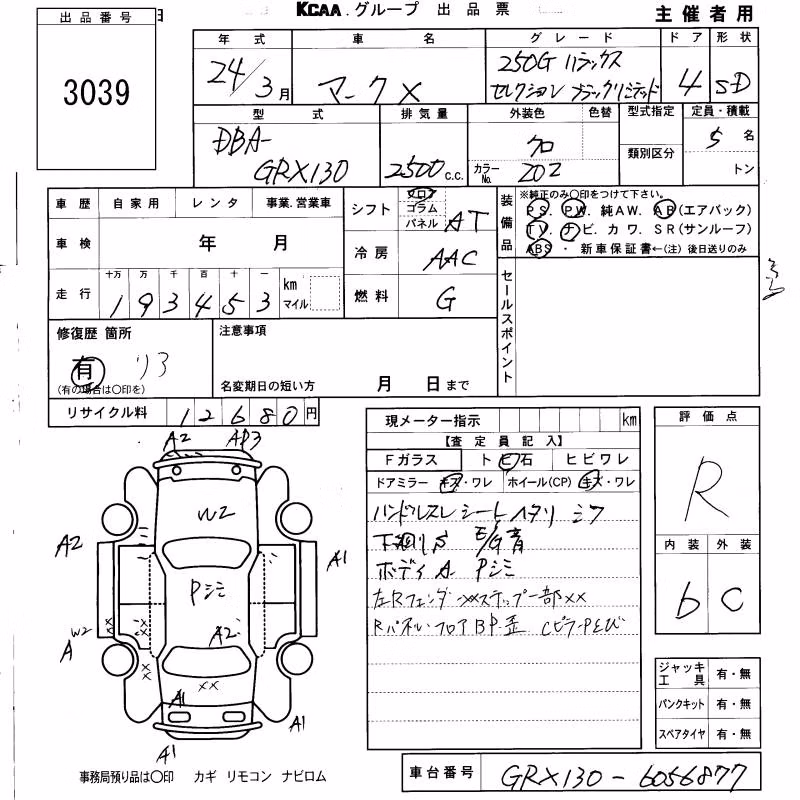 出品番号
3039
KCAA.グループ 出品票
主催者用
年式 車名 グレード ドア 形状
24/3月 マークX 250G リラックスセレクション ブラックリミテッド 4 SD
型式 排気量 外装色 色替 型式指定 定員・積載
DBA-GRX130 2500c.c. クロ カラーNo. 202 類別区分 5名 トン
車歴 自家用 レンタ 事業.営業車
車検 年 月
走行 十万 万 千 百 十 一
193453 km マイル
シフト フロア コラム パネル AT
冷房 AAC
燃料 G
装備品
※純正のみ〇印をつけて下さい。
PS. PW. 純AW. AB(エアバック)
TV. ナビ. カワ. SR(サンルーフ)
ABS・新車保証書←(注)後日送りのみ
セールスポイント
修復歴 箇所
有 リア
(有の場合は〇印を)
注意事項
名変期日の短い方 月 日まで
リサイクル料 12680円
現メーター指示 km
【査定員記入】
Fガラス トビ石 ヒビワレ
ドアミラー キズ・ワレ ホイール(CP) キズ・ワレ
ハンドルスレ シートヘタリ シワ
下廻りS E/G音
ボディA Pシミ
左Rフェンダ-××ステップ一部××
Rパネル・フロアBP・歪 CピラーPとび
評価点
R
内装 外装
b C
ジャッキ工具 有・無
パンクキット 有・無
スペアタイヤ 有・無
A2 AP3
W2
A2 A1
Pシミ
A2
W2
A
××
××
××
××
A1
A1
A1
事務局預り品は〇印 カギ リモコン ナビロム
車台番号 GRX130-6056877